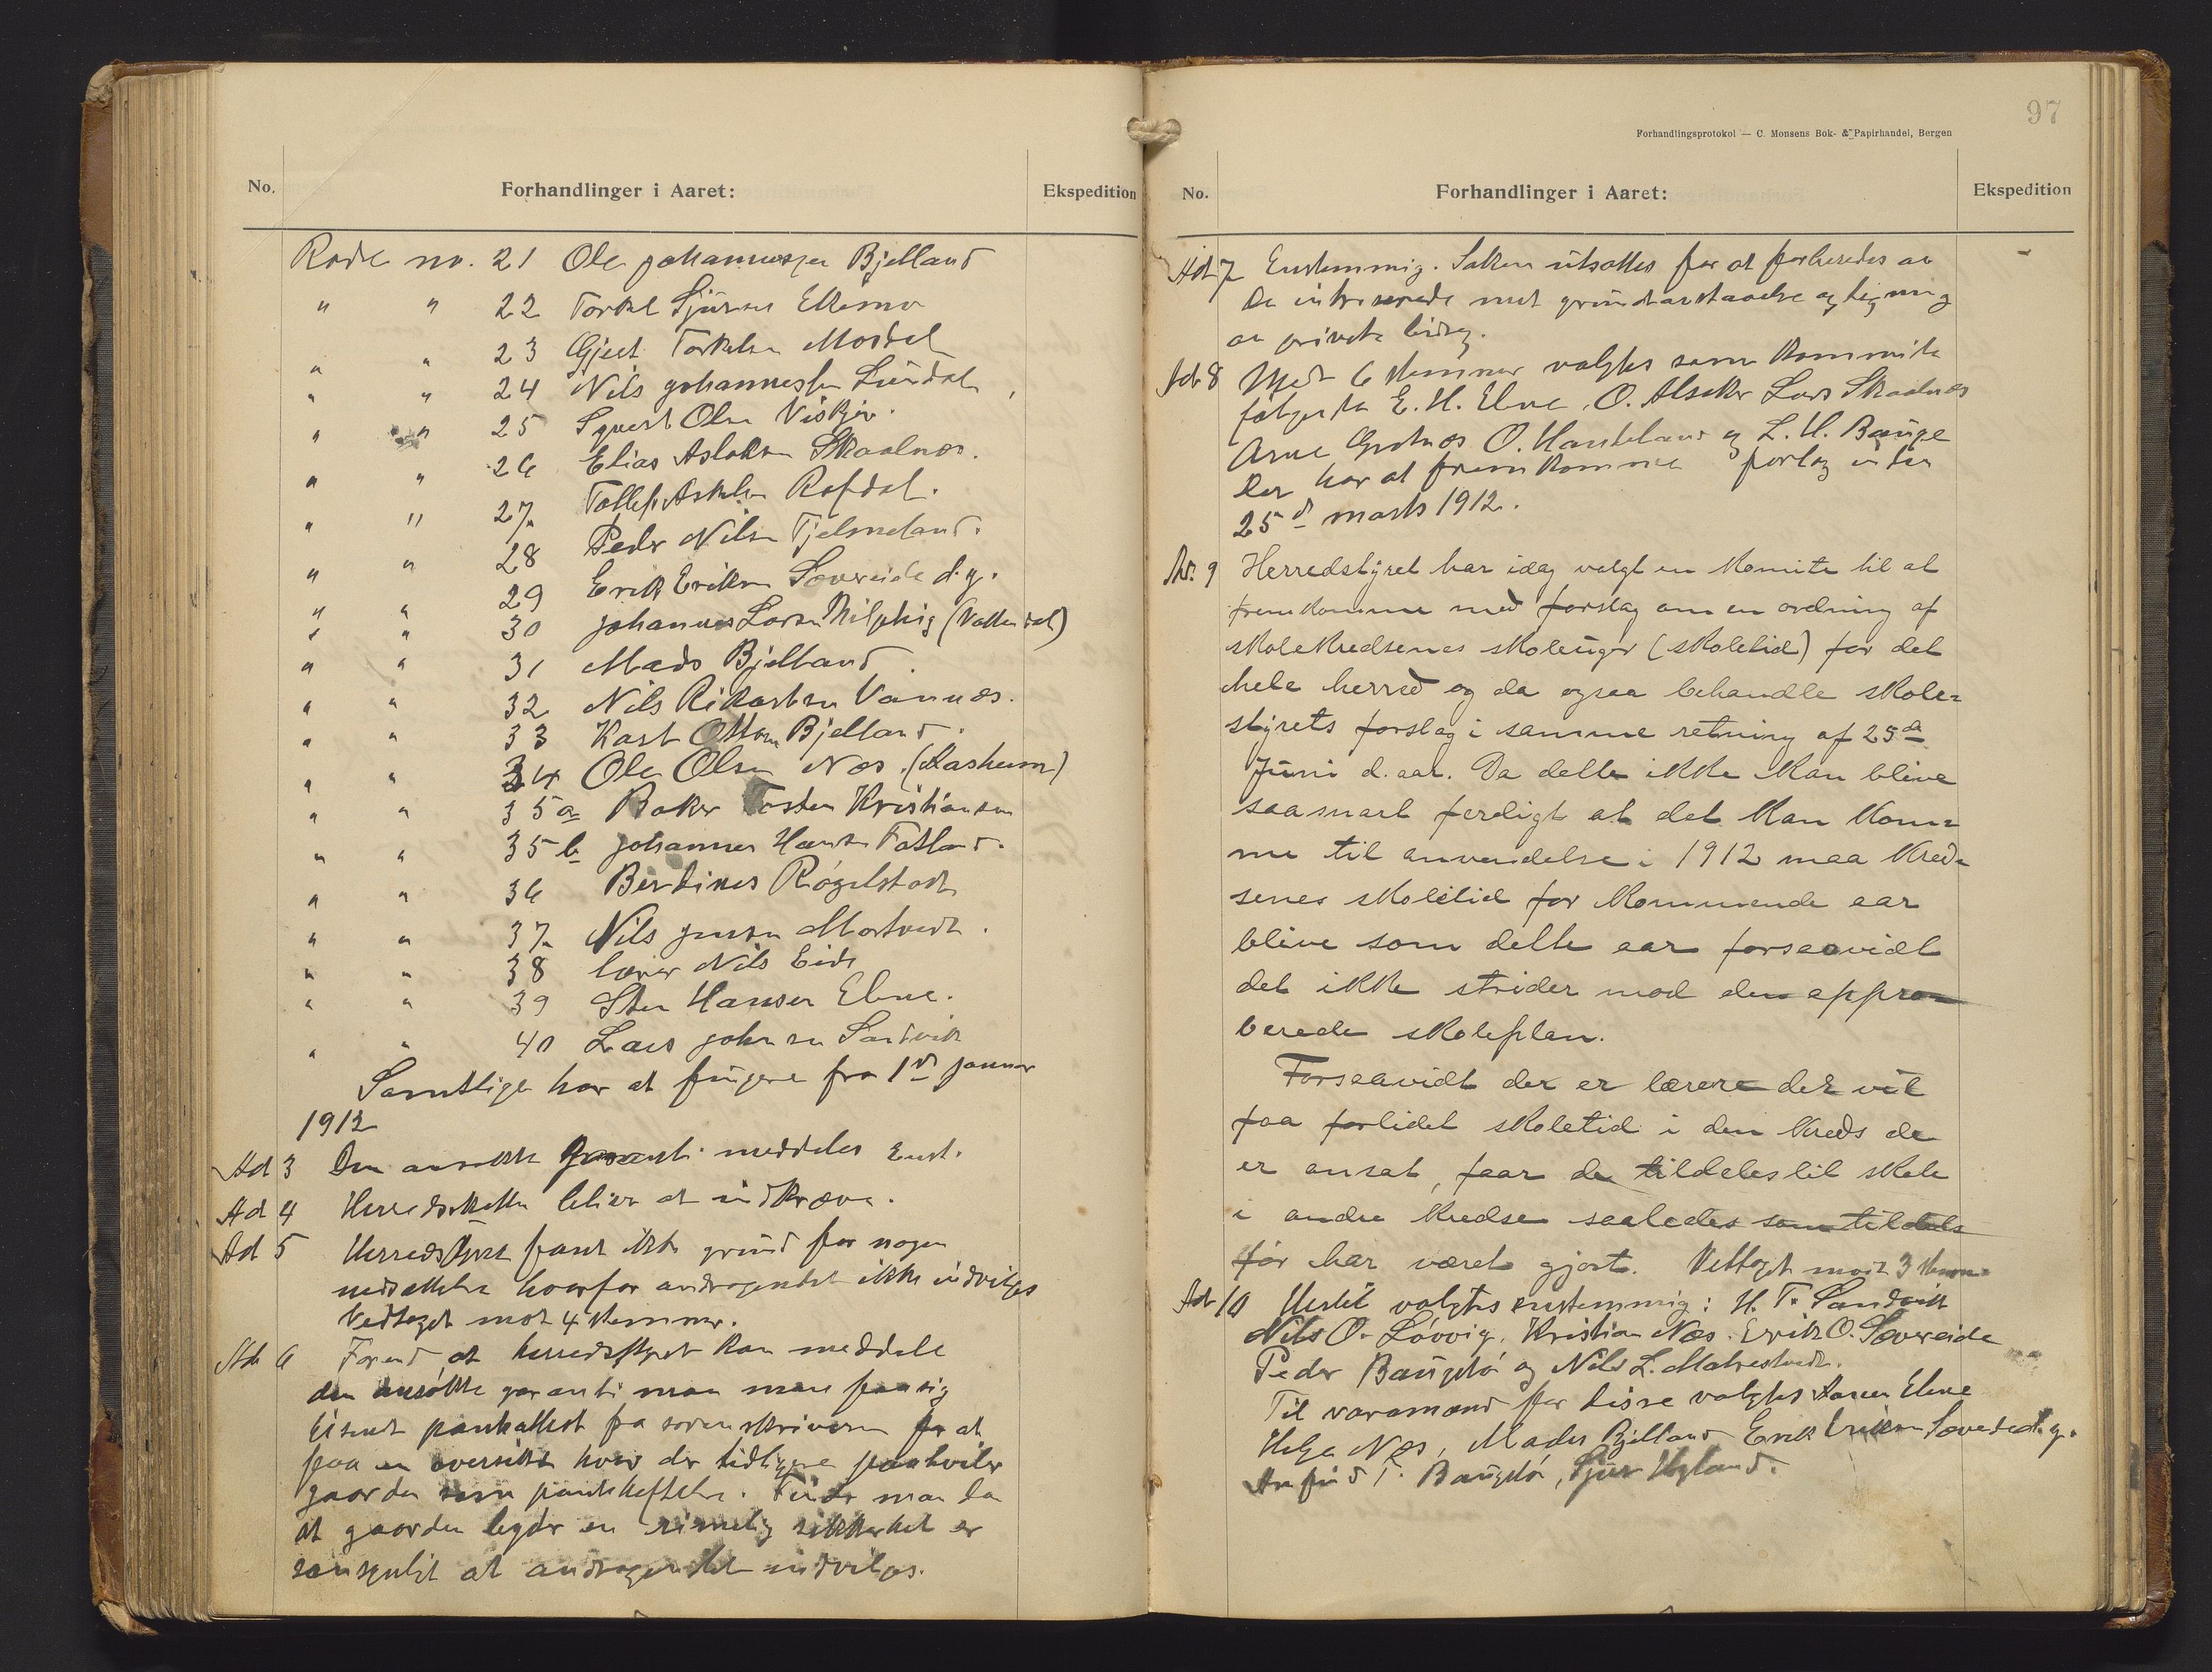 No. Forhandlinger i Aaret: Ekspedition
Rode no. 21 Ole Johannessen Bjelland
" " 22 Torkel Sjursen Ettemo
" " 23 Gjert Torkelsen Mosdal
" " 24 Nils Johannessen Lundal
" " 25 Sjvert Olsen
" " 26 Elias Aslaksen Skaalnæs.
" " 27 Tollef Askelsen Rafdal.
" " 28 Peder Nilsen Tjelmeland.
" " 29 Erik Eriksen Sævreide d.y.
" " 30 Johannes Larsen (Vattendal)
" " 31 Mads Bjelland
" " 32 Nils Rikardsen Vannæs.
" " 33 Karl Ottesen Bjelland.
" " 34 Ole Olsen Næs. (Aasheim)
" " 35 a Baker Tosten Kristiansen
" " 35 b Johannes Hansen Fatland.
" " 36 Berdines Røgelstad
" " 37 Nils Jensen Mortvedt.
" " 38 lærer Nils Eide
" " 39 Sten Hansen Elvne.
" " 40 Lars Johnsen Sandvik
Samtlige har at fungere fra 1de januar
1912
Ad 3 Den ansøkte garanti meddeles Enst.
Ad 4 Herredskatten blir at indkræve.
Ad 5 Herredstyret fant ikke grund for nogen
nedsættelse hvorfor andragendet ikke indvilges
Vedtaget mot 4 stemmer.
Ad 6 Forend at herredstyret kan meddele
den ansøkte garanti maa man faa sig
tilsendt panteattest fra sorenskriveren for at
faa en oversikt hvad der tidligere paahviler
gaarden som pantheftelse. Finder man da
at gaarden byder en rimelig sikkerhet er
man enig i at andragendet indvilges.
97
Forhandlingsprotokol — C. Monsens Bok- & Papirhandel, Bergen
No. Forhandlinger i Aaret: Ekspedition
Ad 7 Enstemmig. Saken utsættes for at forberedes av
de intreserede med grundavstaaelse og tegning
av private bidrag.
Ad 8 Med 6 stemmer valgtes som kommite
følgende E. H. Elvne, O. Alsaker Lars Skaalnæs
Arne Grotnæs O. Handeland og L. H. Bauge
Der har at fremkomme forslag inden
25de marts 1912.
Nr. 9 Herredstyret har idag valgt en komite til at
fremkomme med forslag om en ordning af
skolekredsenes skoleuger (skoletid) for det
hele herred og da ogsaa behandle skole=
styrets forslag i samme retning af 25de
Juni d. aar. Da dette ikke kan blive
saa snart ferdigt at det kan kom=
me til anvendelse i 1912 maa kred=
senes skoletid for kommende aar
blive som dette aar forsaavidt
det ikke strider mod den appro=
berede skoleplan.
Forsaavidt der er lærere der vil
faa forlidet skoletid i den kreds de
er ansat, faar de tildeles til skole
i andre kredse saaledes som tildels
før har været gjort. Vettaget mot 3 stem=
Ad 10 Hertil valgtes enstemmig: H. T. Sandvik
Nils O. Løvvig, Kristian Næs. Erik O. Sævreide
Peder Baugstø og Nils L. Matrestvedt.
Til varamænd for disse valgtes Aamen Elvne
Helge Næs, Mads Bjelland Erik Eriksen Sævreide d.y.
Anfind T. Baugstø, Sjur Uglund.